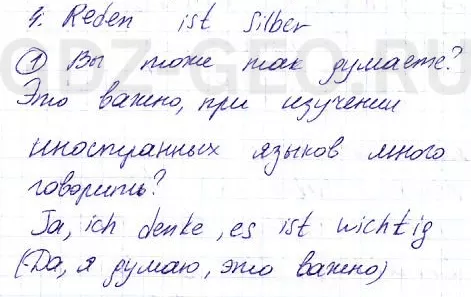 4. Reden ist Silber
① Вы тоже так думаете?
Это важно, при изучении
иностранных языков много
говорить?
Ja, ich denke, es ist wichtig
(Да, я думаю, это важно)